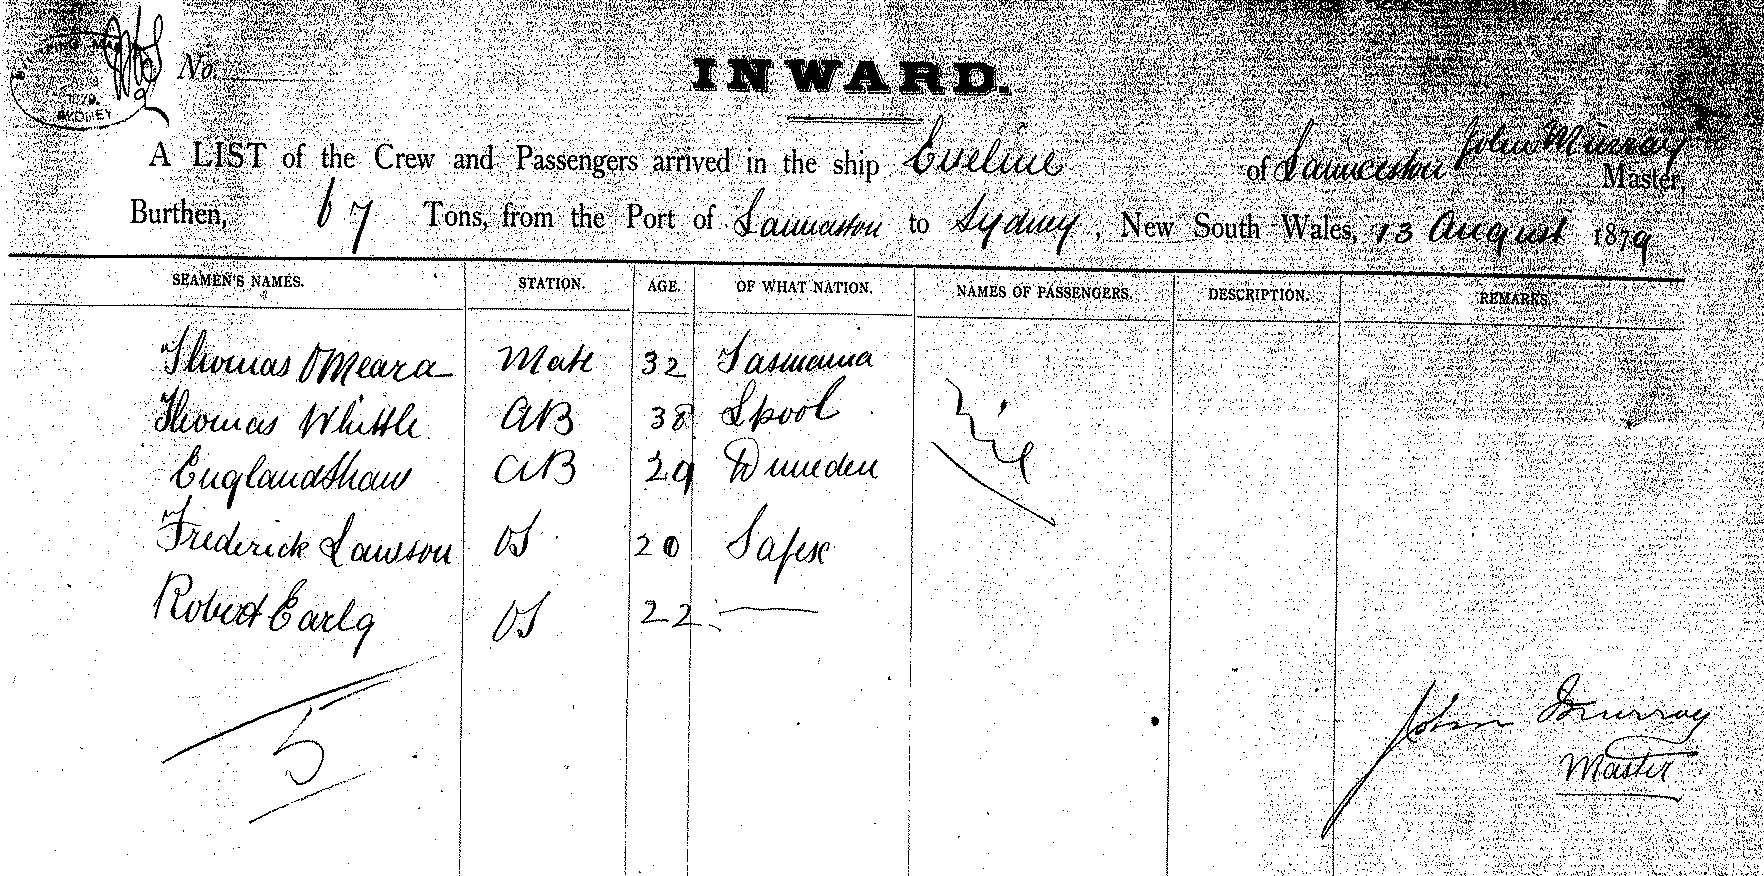 1879.
SYDNEY
No.
INWARD.
A LIST of the Crew and Passengers arrived in the ship Eveline of Launceston John Murray Master,
Burthen, 67 Tons, from the Port of Launceston to Sydney, New South Wales, 13 August 1879
SEAMEN'S NAMES. STATION. AGE. OF WHAT NATION. NAMES OF PASSENGERS. DESCRIPTION. REMARKS.
Thomas O'Meara Mate 32 Tasmania
Thomas Whittle AB 38 Lpool
England Shaw AB 29 Duneden
Nil
Frederick Lawson OS 20
Robert Early OS 22 —
5
John Murray
Master